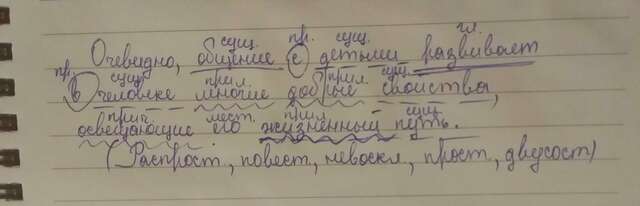 сущ. пр. сущ. гл.
Очевидно, общение с детьми развивает
пр. сущ. прил. прил. сущ.
в человеке многие добрые свойства,
прич. мест. прил. сущ.
освещающие его жизненный путь.
(Распрост, повест, невоскл, прост, двусост)